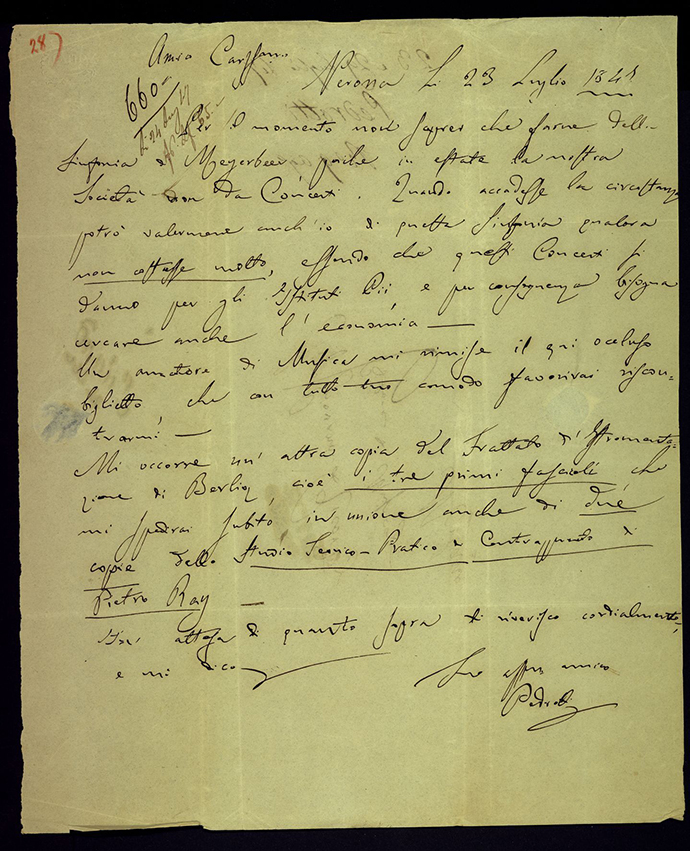 28)
Amico Cariss.mo
Verona Li 23 Luglio 1847
660
Li 24 Lug 47
Per il momento non saprei che farne della
Sinfonia di Meyerbeer poiché in estate la nostra
Società non da Concerti. Quando accadesse la circostanza
potrò valermene anch'io di questa Sinfonia qualora
non costasse molto, essendo che questi Concerti si
danno per gli Istituti Pii, e per conseguenza bisogna
cercare anche l'economia —
Un amatore di Musica mi rimise il qui occluso
biglietto, che con tutto tuo comodo favorirai riscon-
trarmi —
Mi occorre un'altra copia del Trattato d'Istromenta-
zione di Berlioz cioè i tre primi fascicoli che
mi spedirai subito in unione anche di due
copie dello Studio Teorico-Pratico di Contrappunto di
Pietro Ray —
In attesa di quanto sopra ti riverisco cordialmente,
e mi dico
Tuo affmo amico
Pedrotti